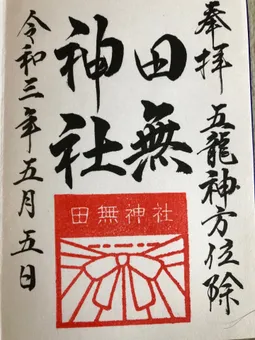 奉拝 五龍神方位除
田無
神社
田無神社
令和三年五月五日